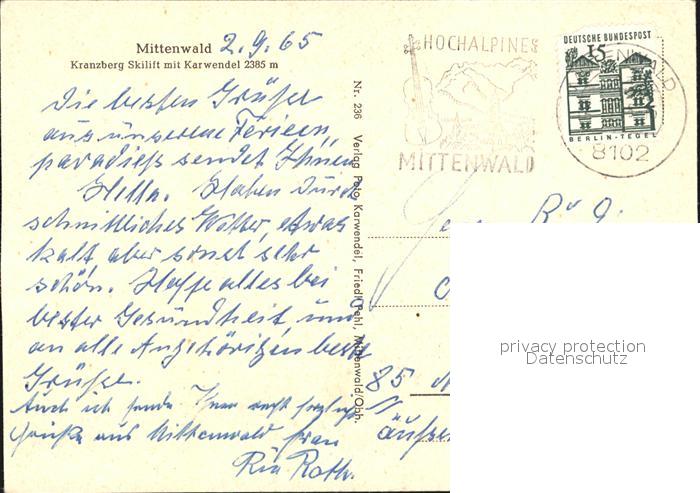 Mittenwald 2.9.65
Kranzberg Skilift mit Karwendel 2385 m
Die besten Grüße
aus unserem Ferien,,
paradieß sendet Ihnen
Hilla. Haben Durch
schnittliches Wetter, etwas
kalt, aber sonst sehr
schön. Hoffe alles bei
bester Gesundheit, und
an alle Angehörigen beste
Grüße.
Auch ich sende Ihnen recht herzliche
Grüße aus Mittenwald Frau
Ria Roth.
Nr. 236 Verlag Foto Karwendel, Friedl Pehl, Mittenwald/Obb.
HOCHALPINES
MITTENWALD
DEUTSCHE BUNDESPOST
15
BERLIN-TEGEL
MITTENWALD
8102
85 N
äußer
privacy protection
Datenschutz